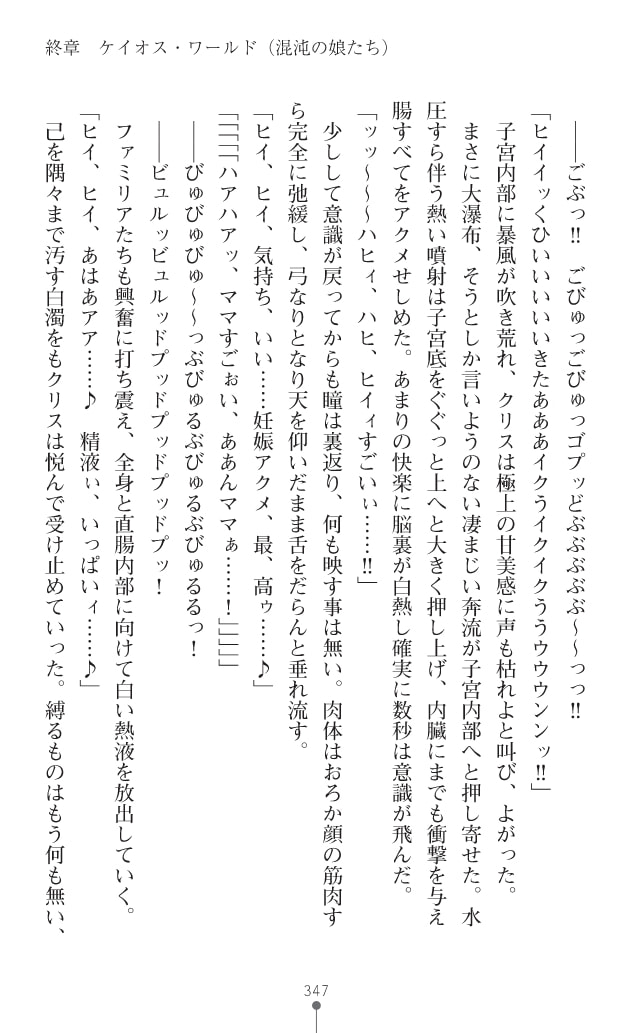 終章　ケイオス・ワールド（混沌の娘たち）
――ごぶっ‼　ごびゅっごびゅっゴプッどぶぶぶぶ～～っっ‼
「ヒイイッくひいいいいいきたあああイクうイクイクううウウウンンッ‼」
子宮内部に暴風が吹き荒れ、クリスは極上の甘美感に声も枯れよと叫び、よがった。
まさに大瀑布、そうとしか言いようのない凄まじい奔流が子宮内部へと押し寄せた。水
圧すら伴う熱い噴射は子宮底をぐぐっと上へと大きく押し上げ、内臓にまでも衝撃を与え
腸すべてをアクメせしめた。あまりの快楽に脳裏が白熱し確実に数秒は意識が飛んだ。
「ッッ～～～ハヒィ、ハヒ、ヒイィすごいぃ……‼」
少しして意識が戻ってからも瞳は裏返り、何も映す事は無い。肉体はおろか顔の筋肉す
ら完全に弛緩し、弓なりとなり天を仰いだまま舌をだらんと垂れ流す。
「ヒイ、ヒイ、気持ち、いい……妊娠アクメ、最、高ゥ……♪」
「「「「ハアハアッ、ママすごぉい、ああんママぁ……！」」」」
――びゅびゅびゅ～～っぶびゅるぶびゅるぶびゅるるっ！
――ビュルッビュルッドプッドプッドプッ！
ファミリアたちも興奮に打ち震え、全身と直腸内部に向けて白い熱液を放出していく。
「ヒイ、ヒイ、あはあアア……♪　精液ぃ、いっぱいィ……♪」
己を隅々まで汚す白濁をもクリスは悦んで受け止めていった。縛るものはもう何も無い、
347